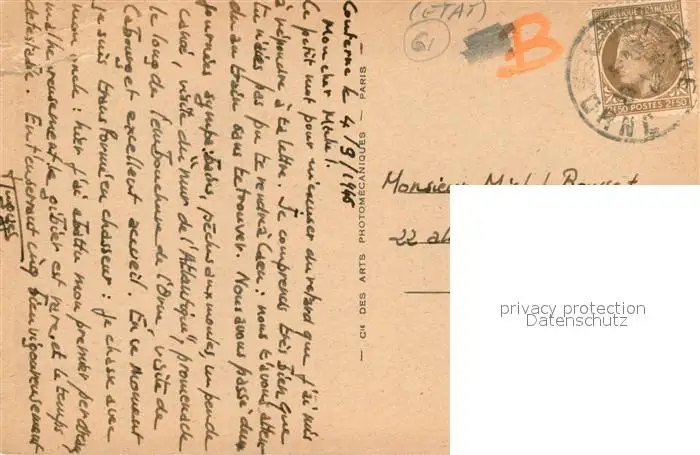 Couterne le 4/9/1946
Mon cher Michel.
Ce petit mot pour m'excuser du retard que j'ai mis
à répondre à ta lettre. Je comprends très bien que
tu n'aies pas pu te rendre à Caen : nous t'avons atten
du au train sans te retrouver. Nous avons passé deux
journées sympathiques, pêche aux moules, un peu de
canoë, visite du "mur de l'Atlantique", promenade
le long de l'embouchure de l'Orne, visite de
Cabourg et excellent accueil. En ce moment
je suis transformé en chasseur : je chasse avec
mon oncle : hier j'ai abattu mon premier perdreau
malheureusement le gibier est rare, et le temps
détestable. En te serrant cinq bien vigoureusement
Jacques
— Cie DES ARTS PHOTOMÉCANIQUES — PARIS —
(ETAT)
61
B
REPUBLIQUE FRANÇAISE
2f50 POSTES 2f50
ORNE
Monsieur Michel
22
privacy protection
Datenschutz